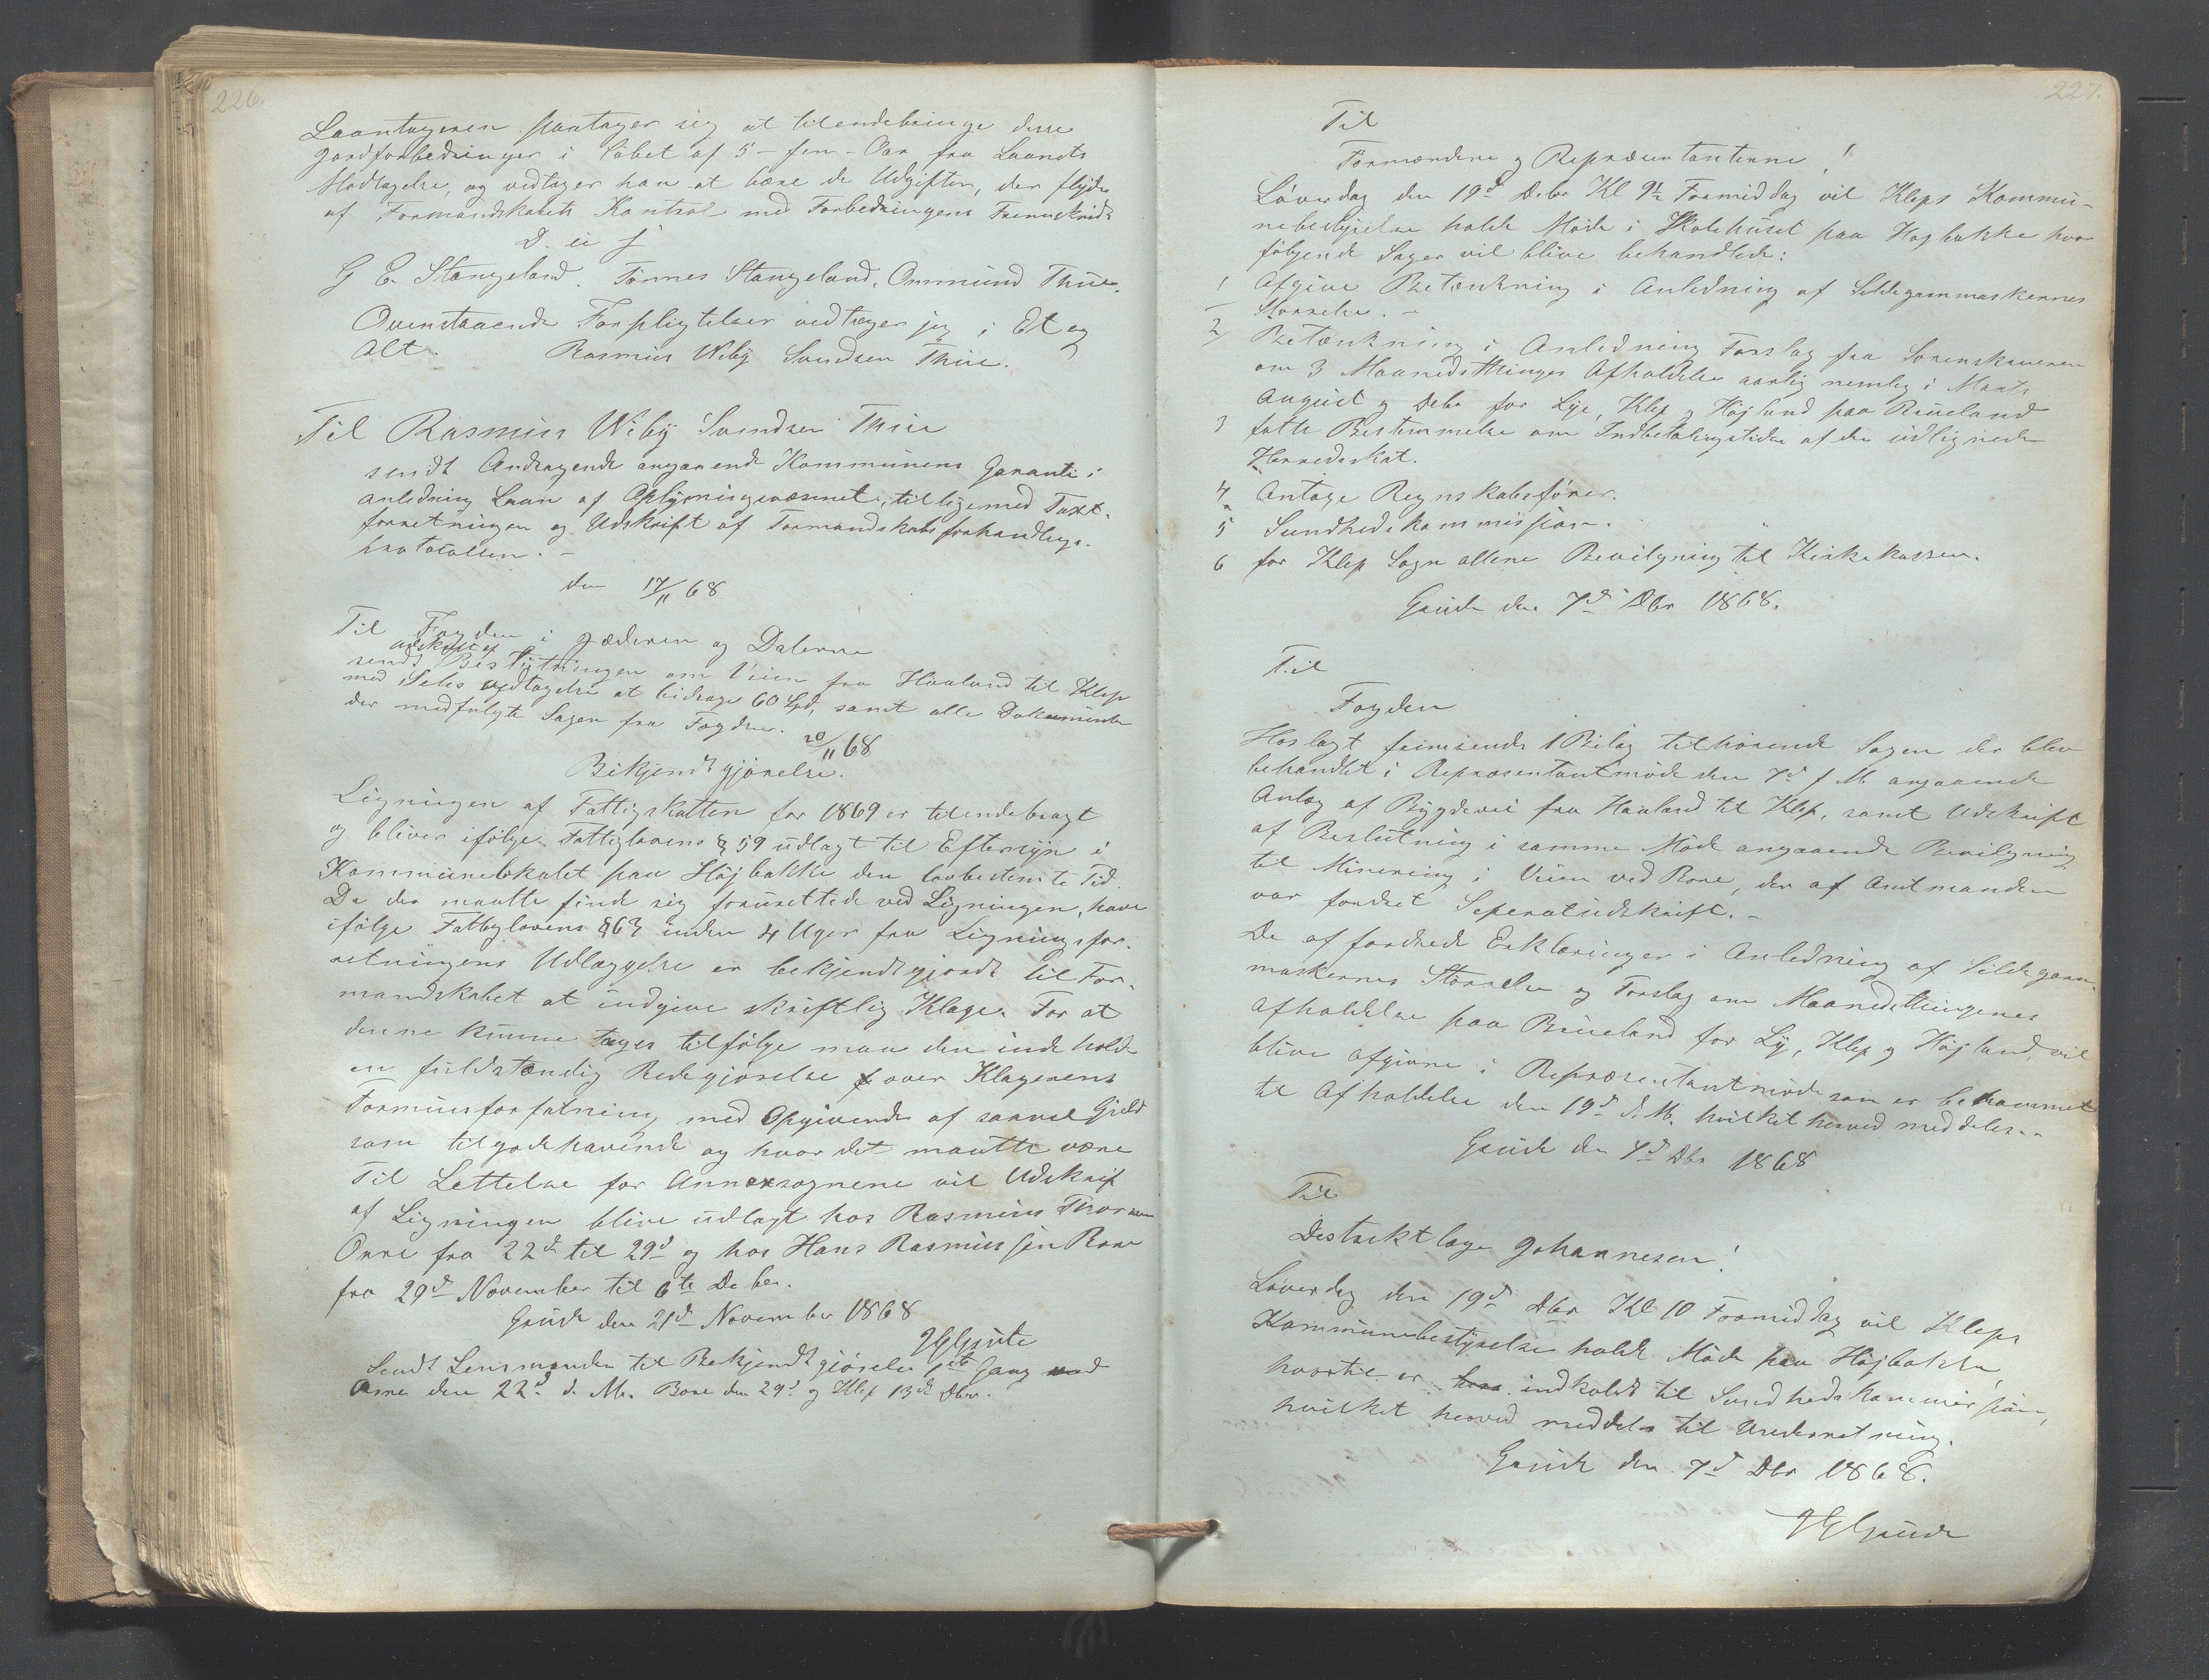 226.
Laantageren paatager sig at tilendebringe disse
Jordforbedringer i Løbet af 5 - fem - Aar fra Laanets
Modtagelse, og vedtager han at bære de Udgifter, der flyder
af Formandskabets Kontrol med Forbedringens Fremskridt
D. u. s.
G E. Stangeland. Tønnes Stangeland. Ommund Thue.
Ovenstaaende Forpligtelser vedtager jeg i Et og
Alt. Rasmus Wiby Svendsen Thue.
Til Rasmus Wiby Svendsen Thue
sendt Andragende angaaende Kommunens Garanti i
anledning Laan af Oplysningsvæsenet, tilligemed Taxt-
forretningen og Udskrift af Formandskabs forhandlings-
protokollen. -
den 17/11 68
Til Fogden i Jæderen og Dalerne
udskrift af
sendt Beslutningen om Veien fra Haaland til Klep
med Seles vedtagelse at bidrage 60 Spd, samt alle Dokumenter
der medfulgte Sagen fra Fogden. 20/11 68
Bekjendtgjørelse.
Ligningen af Fattigskatten for 1869 er tilendebragt
og bliver ifølge Fattiglovens § 59 udlagt til Eftersyn i
Kommunelokalet paa Højbakke den lovbestemte Tid.
De der maatte finde sig forurettede ved Ligningen, have
ifølge Fattiglovens § 63 inden 4 Uger fra Ligningsfor-
retningens Udlæggelse er bekjendtgjordt til For-
mandskabet at indgive skriftlig Klage. For at
denne kunne tages tilfølge maa den inde holde
en fuldstændig Redegjørelse over Klagerens
Formuesforfatning, med Opgivende af saavel Gjeld
som tilgodehavende og hvor det maatte være
Til Lettelse for Annexsognene vil Udskrift
af Ligningen blive udlagt hos Rasmus
Orre fra 22d til 29d og hos Hans Rasmussen Bore
fra 29d November til 6te Deber.
Grude den 21d November 1868
JGGrude
Sendt Lensmanden til Bekjendtgjørelse 1ste Gang ved
Orre den 22d d. M. Bore den 29d og Klep 13de Dbr.
227.
Til
Formændene og Repræsentanterne!
Løverdag den 19d Debr Kl 9½ Formiddag vil Kleps Kommu-
nebestyrelse holde Møde i Skolehuset paa Højbakke hvor
følgende Sager vil blive behandlede:
1 Afgive Betænkning i Anledning af Sildegarnmaskernes
Størrelse. -
2 Betænkning i Anledning Forslag fra Sorenskriveren
om 3 Maanedsthinges Afholdelse aarlig nemlig i Marts
August og Debr for Lye, Klep og Højland paa Brueland
3 fatte Bestemmelse om Indbetalingstiden af den udlignede
Herredsskat.
4 Antage Regnskabsfører.
5 Sundhedskommission.
6 for Klep Sogn allene Bevilgning til Kirkekassen.
Grude den 7d Dbr 1868.
Til
Fogden
Hoslagt fremsendes 1 Bilag tilhørende Sagen der blev
behandlet i Repræsentantmøde den 7d f. M. angaaende
Anlæg af Bygdevei fra Haaland til Klep, samt Udskrift
af Beslutning i samme Møde angaaende Bevilgning
til Minering i Veien ved Bore, der af Amtmanden
var fordret Seperatudskrift. -
De affordrede Erklæringer i Anledning af Sildegarn-
maskernes Størrelse og Forslag om Maanedsthingenes
afholdelse paa Brueland for Ly, Klep og Højland, vil
blive afgivne i Repræsentantmøde som er berammet
til Afholdelse den 19d d. M. hvilket herved meddeles. -
Grude den 7d Dbr 1868
Til
Distriktlæge Johannesen!
Løverdag den 19d Dbr Kl 10 Formiddag vil Kleps
Kommunebestyrelse holde Møde paa Højbakke,
hvortil er indkaldt til Sundhedskommission,
hvilket herved meddeles til Underretning.
Grude den 7d Dbr 1868.
JGGrude